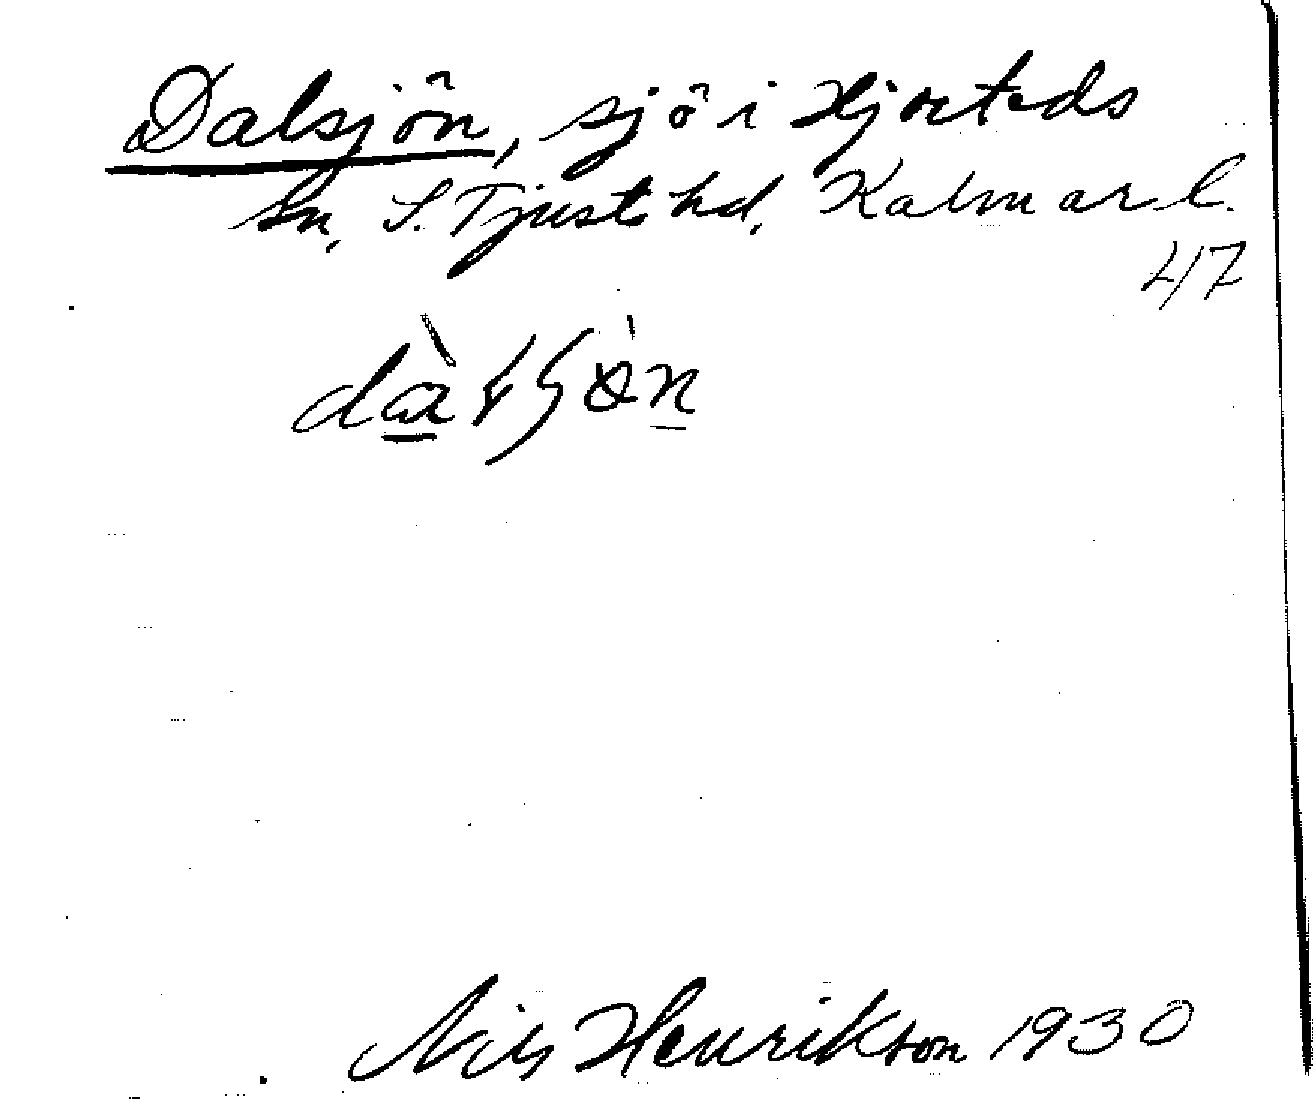 Dalsjön, sjö i Hjorteds
sn, S. Tjust hd, Kalmar l.
47
Nils Henrikson 1930